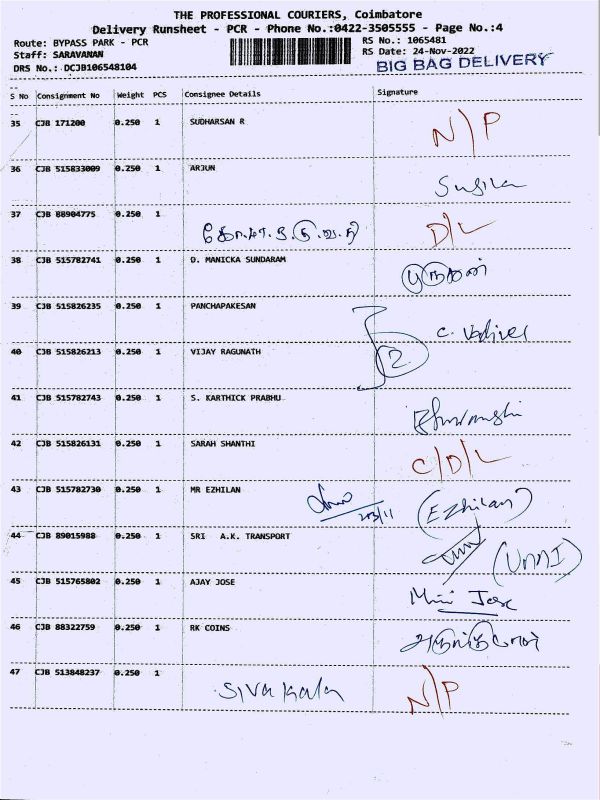 THE PROFESSIONAL COURIERS, Coimbatore
Delivery Runsheet - PCR - Phone No.:0422-3505555 - Page No.:4
Route: BYPASS PARK - PCR
RS No.: 1065481
Staff: SARAVANAN
RS Date: 24-Nov-2022
DRS No.: DCJB106548104
BIG BAG DELIVERY
S No Consignment No Weight PCS Consignee Details Signature
35 CJB 171200 0.250 1 SUDHARSAN R N/P
36 CJB 515833009 0.250 1 ARJUN
37 CJB 88904775 0.250 1 D/L
38 CJB 515782741 0.250 1 D. MANICKA SUNDARAM
39 CJB 515826235 0.250 1 PANCHAPAKESAN C. Vadivel
40 CJB 515826213 0.250 1 VIJAY RAGUNATH 2
41 CJB 515782743 0.250 1 S. KARTHICK PRABHU
42 CJB 515826131 0.250 1 SARAH SHANTHI C/D/L
43 CJB 515782730 0.250 1 MR EZHILAN (Ezhilan)
44 CJB 89015988 0.250 1 SRI A.K. TRANSPORT (UNNI)
45 CJB 515765802 0.250 1 AJAY JOSE Mini Jose
46 CJB 88322759 0.250 1 RK COINS
47 CJB 513848237 0.250 1 Sivakala N/P